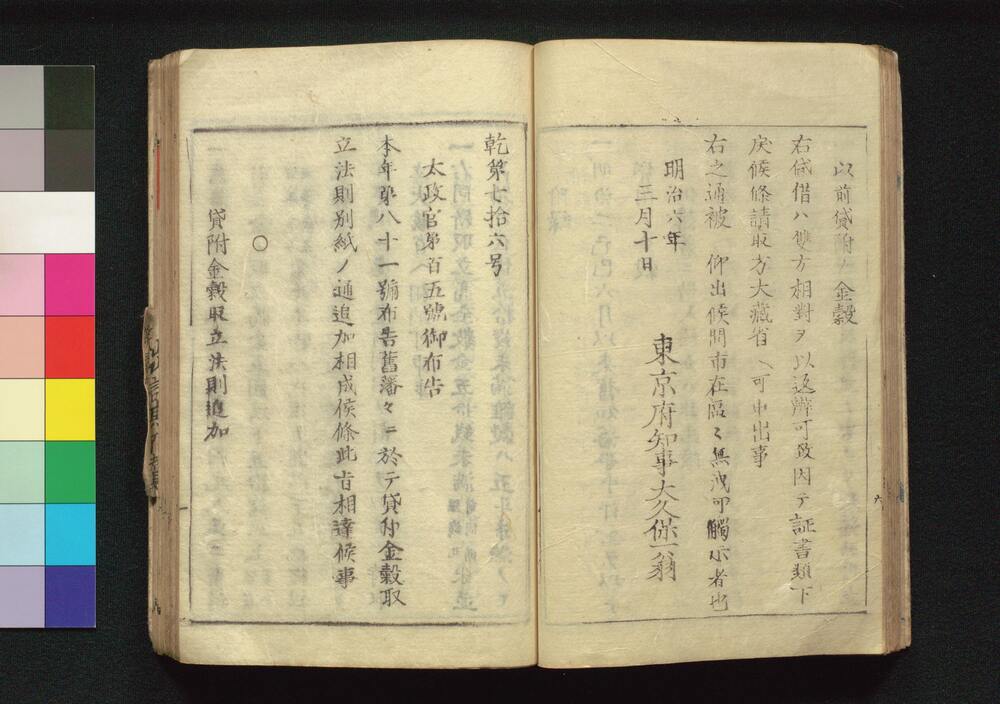 以前貸附ノ金穀
右貸借ハ雙方相對ヲ以返辨可致因テ証書類下
戻候條請取方大藏省ヘ可申出事
右之通被 仰出候間市在區々無洩可觸示者也
明治六年
三月十日
東京府知事大久保一翁
乾第七拾六号
太政官第百五號御布告
本年第八十一號布告舊藩々ニ於テ貸付金穀取
立法則別紙ノ通追加相成候條此旨相達候事
○
貸附金穀取立法則追加